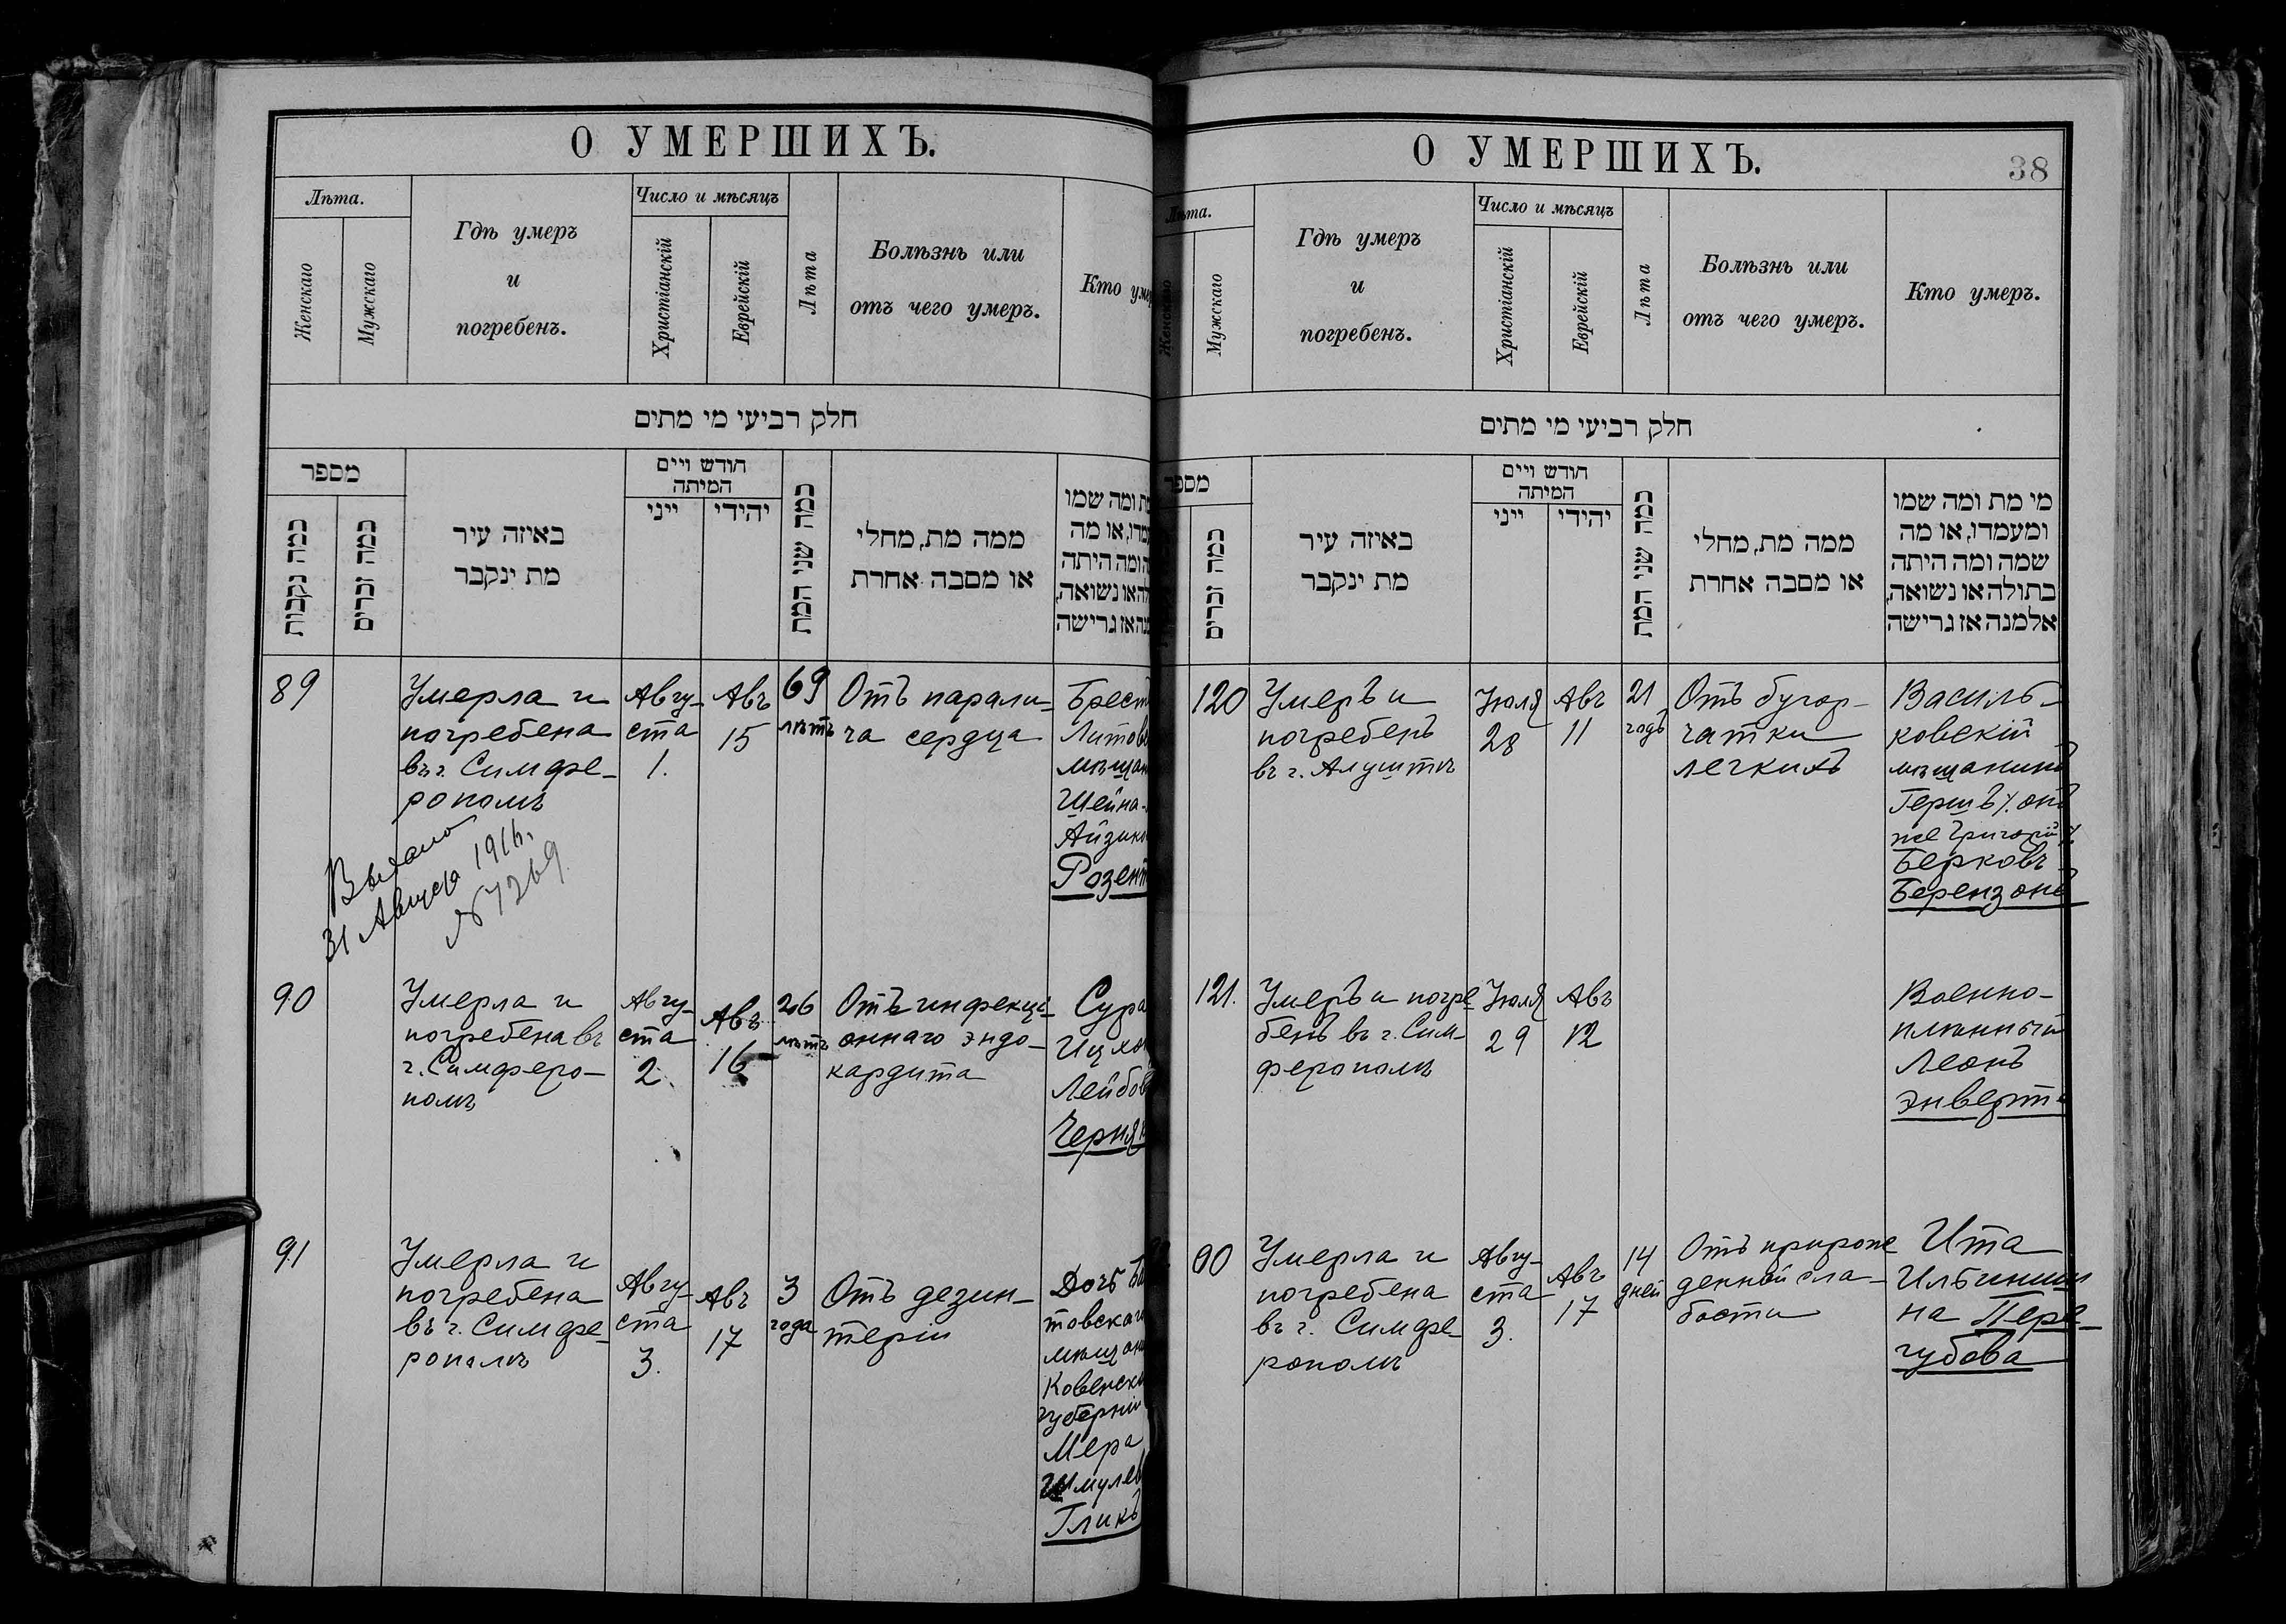 О УМЕРШИХЪ.
Лѣта.
Женскаго
Мужскаго
Гдѣ умеръ
и
погребенъ.
Число и мѣсяцъ
Христіанскій
Еврейскій
Лѣта
Болѣзнь или
отъ чего умеръ.
Кто уме
חלק רביעי מי מתים
מספר
כמה נקבות
כמה זכרים
באיזה עיר
מת ינקבר
חודש ויים
המיתה
ייני
יהידי
כמה שני המת
ממה מת, מחלי
או מסבה אחרת
ת ומה שמו
מדו, או מה
ה ומה היתה
לה או נשואה,
נה אז גרישה
89
Умерла и
погребена
въ г. Симфе-
рополѣ
Авгу-
ста
1.
Авъ
15
69
лѣтъ
Отъ парали-
ча сердца
Брест
Литов
мѣщан
Шейна-
Айзико
Розент
Выдано
31 Августа 1916 г.
№ 1269
90
Умерла и
погребена въ
г. Симферо-
полѣ
Авгу-
ста
2
Авъ
16
26
лѣтъ
Отъ инфекці-
оннаго эндо-
кардита
Сура
Ицко
Лейбов
Черняк
91
Умерла и
погребена
въ г. Симфе-
рополѣ
Авгу-
ста
3.
Авъ
17
3
года
Отъ дезин-
теріи
Дочь
товскаго
мѣщан
Ковенско
губерніи
Мера
Шмулев
Гликъ
О УМЕРШИХЪ.
38
Лѣта.
Женскаго
Мужскаго
Гдѣ умеръ
и
погребенъ.
Число и мѣсяцъ
Христіанскій
Еврейскій
Лѣта
Болѣзнь или
отъ чего умеръ.
Кто умеръ.
חלק רביעי מי מתים
מספר
כמה זכרים
באיזה עיר
מת ינקבר
חודש ויים
המיתה
ייני
יהידי
כמה שני המת
ממה מת, מחלי
או מסבה אחרת
מי מת ומה שמו
ומעמדו, או מה
שמה ומה היתה
בתולה או נשואה,
אלמנה אז גרישה
120
Умеръ и
погребенъ
въ г. Алуштѣ
Іюля
28
Авъ
11
21
годъ
Отъ бугор-
чатки
легкихъ
Василь-
ковскій
мѣщанинъ
Гершъ /. онъ
же Григорій /.
Берковъ
Берензонъ
121.
Умеръ и погре-
бенъ въ г. Сим-
ферополѣ
Іюля
29
Авъ
12
Военно-
плѣнный
Леонъ
Энвертъ
90
Умерла и
погребена
въ г. Симфе-
рополѣ
Авгу-
ста
3.
Авъ
17
14
дней
Отъ прирож
денной сла-
бости
Ита
Ильинич
на Пере-
губова